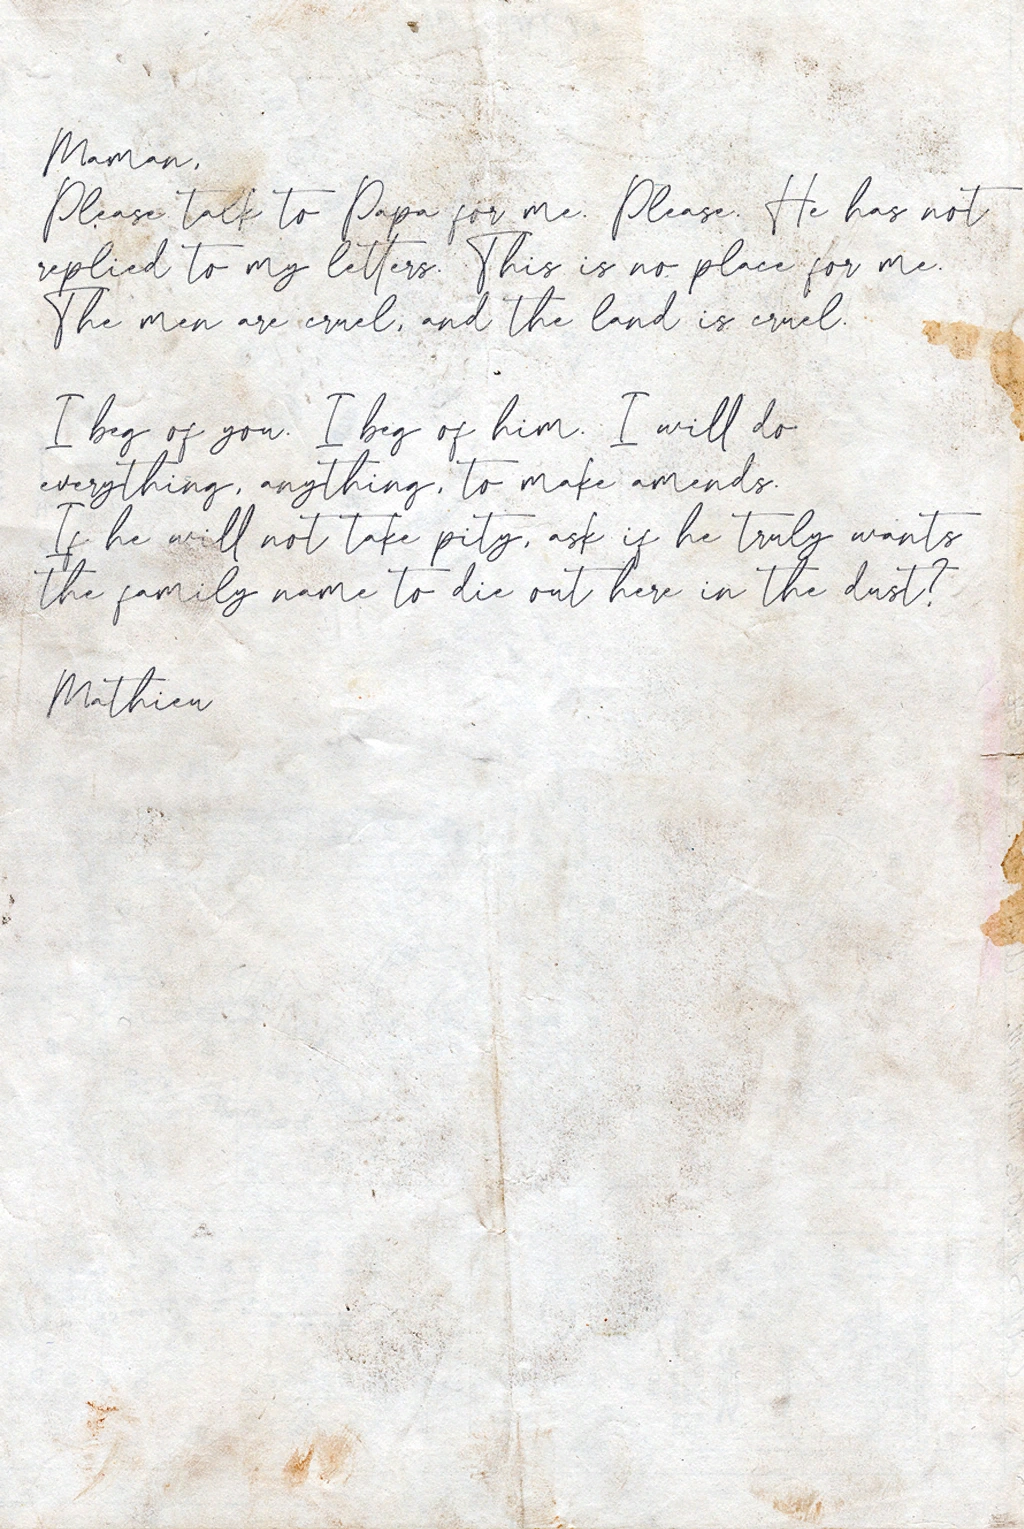 Maman,
Please talk to Papa for me. Please. He has not
replied to my letters. This is no place for me.
The men are cruel, and the land is cruel.
I beg of you. I beg of him. I will do
everything, anything, to make amends.
If he will not take pity, ask if he truly wants
the family name to die out here in the dust?
Mathieu